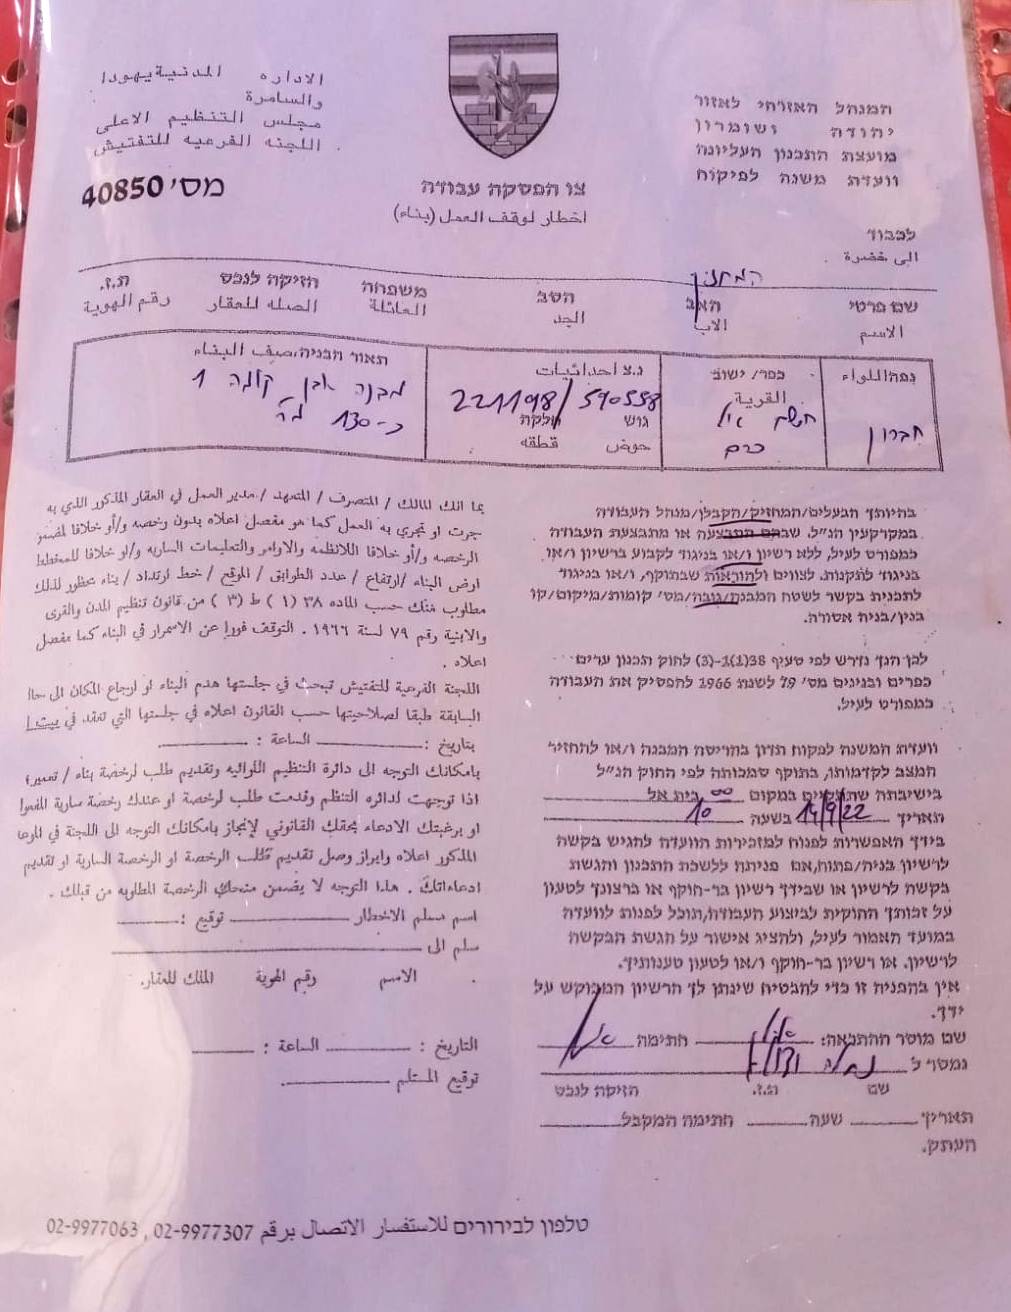 המנהל האזרחי לאזור
יהודה ושומרון
מועצת התכנון העליונה
וועדת משנה לפיקוח
الاداره المدنية يهودا
والسامرة
مجلس التنظيم الاعلى
اللجنه الفرعيه للتفتيش
מס' 40850
צו הפסקה עבודה
اخطار لوقف العمل (بناء)
לכבוד
الى حضرة
המחזיק
שם פרטי האב הסב משפחה חזיקה לנכס ת.ז.
الاسم الاب الجد العائلة الصله للعقار رقم الهوية
נפה/اللواء
חברון
כפר/ישוב
القرية
כרם
נ.צ احداثيات
221198/590558
גוש חלקה
حوض قطقه
תאור הבניה/صيف البناء
מבנה אבן קומה 1
כ-130 מ"ר
בהיותך הבעלים/המחזיק/הקבלן/מנהל העבודה
במקרקעין הנ"ל, שבהם התבצעה או מתבצעת העבודה
כמפורט לעיל, ללא רשיון ו/או בניגוד לקבוע ברשיון ו/או
בניגוד לתקנות, לצווים ולהוראות שבתוקף, ו/או בניגוד
לתכנית בקשר לשטח המבנה/גובה/מס' קומות/מיקום/קו
בנין/בניה אסורה.
לכן הנך נדרש לפי סעיף 38(1)-1(3) לחוק תכנון ערים
כפרים ובנינים מס' 79 לשנת 1966 להפסיק את העבודה
כמפורט לעיל.
וועדת המשנה לפקוח תדון בהריסת המבנה ו/או להחזיר
המצב לקדמותו, בתוקף סמכותה לפי החוק הנ"ל
בישיבתה שתתקיים במקום בית אל
תאריך 14/9/22 בשעה 10
בידך האפשרות לפנות למזכירות הוועדה להגיש בקשה
לרשיון בניה/פתוח, אם פניתה ללשכת התכנון והגשת
בקשה לרשיון או שבידך רשיון בר-תוקף או ברצונך לטעון
על זכותך החוקית לביצוע העבודה, תוכל לפנות לוועדה
במועד האמור לעיל, ולהציג אישור על הגשת הבקשה
לרשיון, או רשיון בר-תוקף ו/או לטעון טענותיך.
אין בהפניה זו כדי להבטיח שינתן לך הרשיון המבוקש על
ידך.
שם מוסר ההתראה: חתימה
נמסר ל
שם ת.ז. הזיקה לנכס
תאריך שעה חתימה המקבל
העתק.
بما انك المالك / المتصرف / المتعهد / مدير العمل في العقار المذكور الذي به
جرت او تجري به العمل كما هو مفصل اعلاه بدون رخصه و/أو خلافا لمضمو
الرخصه و/أو خلافا اللانظمه والاوامر والتعليمات الساريه و/او خلافا للمخطط
ارض البناء /ارتفاع / عدد الطوابق / الموقع / خط ارتداد / بناء محظور لذلك
مطلوب منك حسب الماده ٣٨ (١) ط (٣) من قانون تنظيم المدن والقرى
والابنية رقم ٧٩ لسنة ١٩٦٦ . التوقف فورا عن الاستمرار في البناء كما مفصل
اعلاه .
اللجنة الفرعية للتفتيش تبحث في جلستها هدم البناء او ارجاع المكان الى حا
السابقة طبقا لصلاحيتها حسب القانون اعلاه في جلستها التي تعقد في بيت ا
بتاريخ : الساعة :
بامكانك التوجه الى دائرة التنظيم اللوائيه وتقديم طلب لرخصة بناء / تعمير،
اذا توجهت لدائره التنظم وقدمت طلب لرخصة او عندك رخصة سارية المفعوا
او برغبتك الادعاء بحقك القانوني لإنجاز بامكانك التوجه الى اللجنة في الموعا
المذكور اعلاه وابراز وصل تقديم طلب الرخصة او الرخصة السارية او تقديم
ادعاءاتك . هذا التوجه لا يضمن منحك الرخصة المطلوبه من قبلك .
اسم مسلم الاخطار توقيع :
سلم الى
الاسم رقم الهوية الملك للعقار.
التاريخ : الساعة :
توقيع المستلم
טלפון לבירורים للاستفسار الاتصال برقم 02-9977307 , 02-9977063